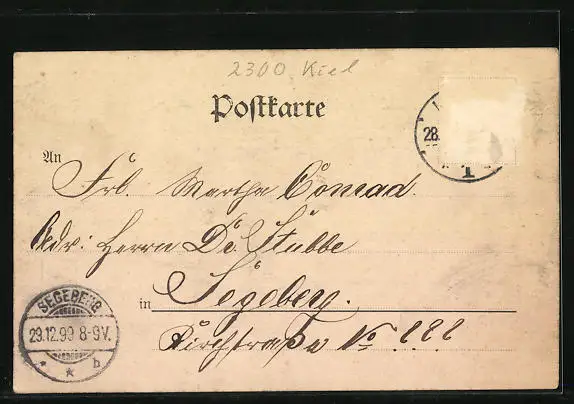 2300 Kiel
Postkarte
28.
1
An
Frl. Martha Conrad.
Adr: Herrn Dr. Stubbe
in Segeberg.
Kirchstraße No 222
SEGEBERG
29.12.99 8-9V.
* * b